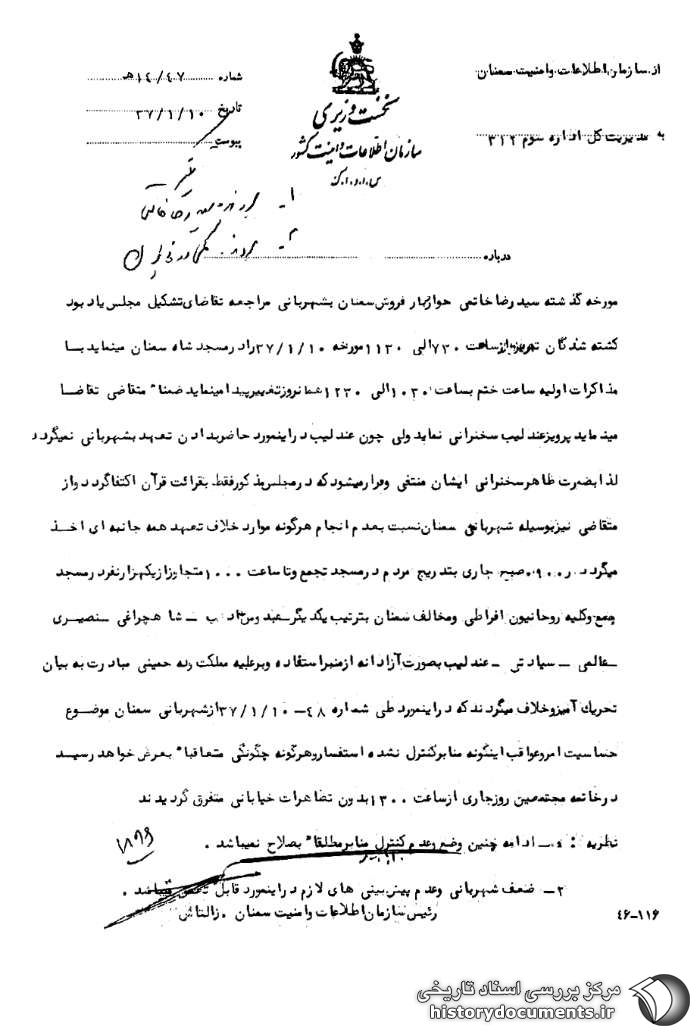 از سازمان اطلاعات و امنیت سمنان
به مدیریت کل اداره سوم ۳۱۲
نخست وزیری
سازمان اطلاعات و امنیت کشور
س.ا.و.ا.ک
شماره ۱۴/۴۷هـ
تاریخ ۳۷/۱/۱۰
پیوست
۱ـ
۲ـ
درباره
مورخه گذشته سید رضا خاتمی خواربار فروش سمنان بشهربانی مراجعه تقاضای تشکیل مجلس یاد بود
کشته شدگان تبریز از ساعت ۷۳۰ الی ۱۱۳۰ مورخه ۳۷/۱/۱۰ را در مسجد شاه سمنان مینماید با
مذاکرات اولیه ساعت ختم بساعت ۱۰۳۰ الی ۱۲۳۰ همانروز تغییر پیدا مینماید ضمنا" متقاضی تقاضا
مینماید پرویز عندلیب سخنرانی نماید ولی چون عندلیب در اینمورد حاضر بدادن تعهد بشهربانی نمیگردد
لذا بصورت ظاهر سخنرانی ایشان منتفی و قرار میشود که در مجلس مذکور فقط بقرائت قرآن اکتفا گردد و از
متقاضی نیز بوسیله شهربانی سمنان نسبت بعدم انجام هرگونه موارد خلاف تعهد همه جانبه ای اخذ
میگردد در ۰۹۰۰ صبح جاری بتدریج مردم در مسجد تجمع و تا ساعت ۱۰۰۰ متجاوز از یکهزار نفر در مسجد
جمع و کلیه روحانیون افراطی و مخالف سمنان بترتیب یکدیگر ـ شاهچراغی ـ نصیری
ـ عالمی ـ سیادتی ـ عندلیب بصورت آزادانه از منبر استفاده و بر علیه مملکت و له خمینی مبادرت به بیان
تحریک آمیز و خلاف میگردند که در اینمورد طی شماره ۴۸ـ ۳۷/۱/۱۰ از شهربانی سمنان موضوع
حساسیت امر و عواقب اینگونه منابر کنترل نشده استفسار و هرگونه چگونگی متعاقبا" بعرض خواهد رسید
در خاتمه مجتمعین روز جاری از ساعت ۱۳۰۰ بدون تظاهرات خیابانی متفرق گردیدند
نظریه : ۱ـ ادامه چنین وضع و عدم کنترل منابر مطلقا" بصلاح نمیباشد .
۲ـ ضعف شهربانی و عدم پیش بینی های لازم در اینمورد قابل تعمق میباشد .
رئیس سازمان اطلاعات و امنیت سمنان . زالتاش
۴۶-۱۱۶
مرکز بررسی اسناد تاریخی
historydocuments.ir